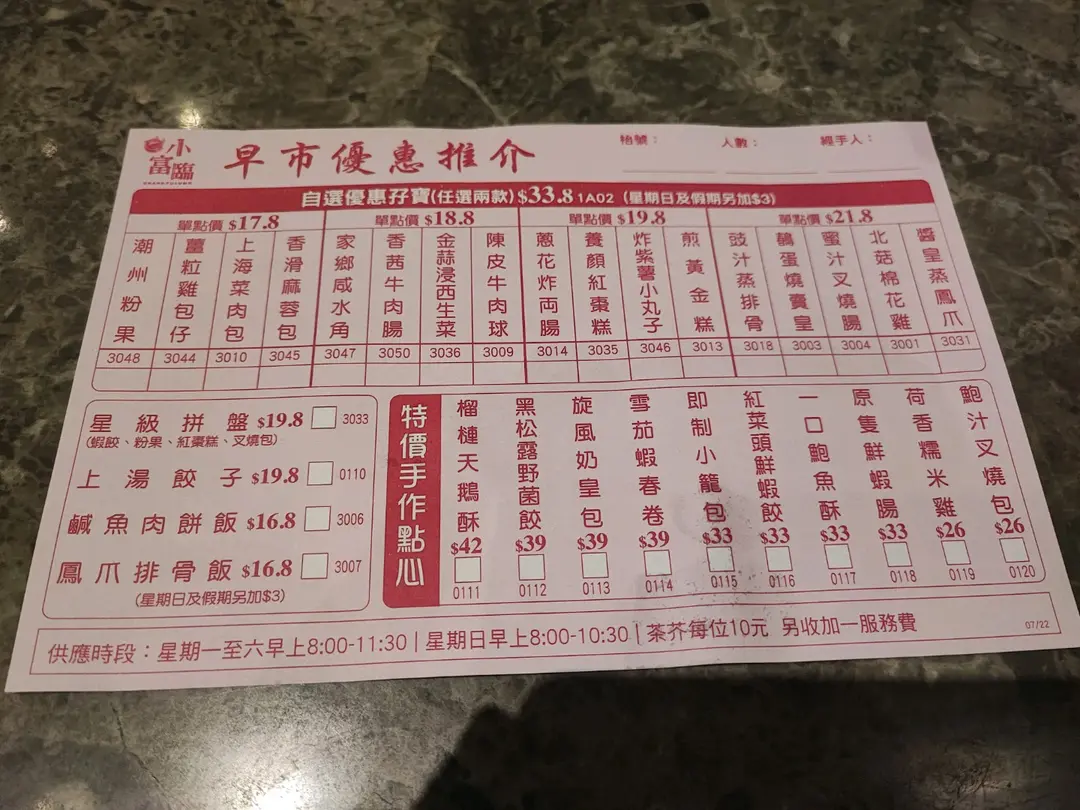 小富臨
早市優惠推介
枱號：
人數：
經手人：
自選優惠孖寶(任選兩款)$33.8 1A02 (星期日及假期另加$3)
單點價 $17.8
單點價 $18.8
單點價 $19.8
單點價 $21.8
潮州粉果
薑粒雞包仔
上海菜肉包
香滑麻蓉包
家鄉咸水角
香茜牛肉腸
金蒜浸西生菜
陳皮牛肉球
蔥花炸両腸
養顏紅棗糕
炸紫薯小丸子
煎黃金糕
豉汁蒸排骨
鵪蛋燒賣皇
蜜汁叉燒腸
北菇棉花雞
醬皇蒸鳳爪
3048 3044 3010 3045 3047 3050 3036 3009 3014 3035 3046 3013 3018 3003 3004 3001 3031
星級拼盤 $19.8 3033
(蝦餃、粉果、紅棗糕、叉燒包)
上湯餃子 $19.8 0110
鹹魚肉餅飯 $16.8 3006
鳳爪排骨飯 $16.8 3007
(星期日及假期另加$3)
特價手作點心
榴槤天鵝酥 $42 0111
黑松露野菌餃 $39 0112
旋風奶皇包 $39 0113
雪茄蝦春卷 $39 0114
即制小籠包 $33 0115
紅菜頭鮮蝦餃 $33 0116
一口鮑魚酥 $33 0117
原隻鮮蝦腸 $33 0118
荷香糯米雞 $26 0119
鮑汁叉燒包 $26 0120
供應時段：星期一至六早上8:00-11:30 | 星期日早上8:00-10:30 | 茶芥每位10元 另收加一服務費
07/22